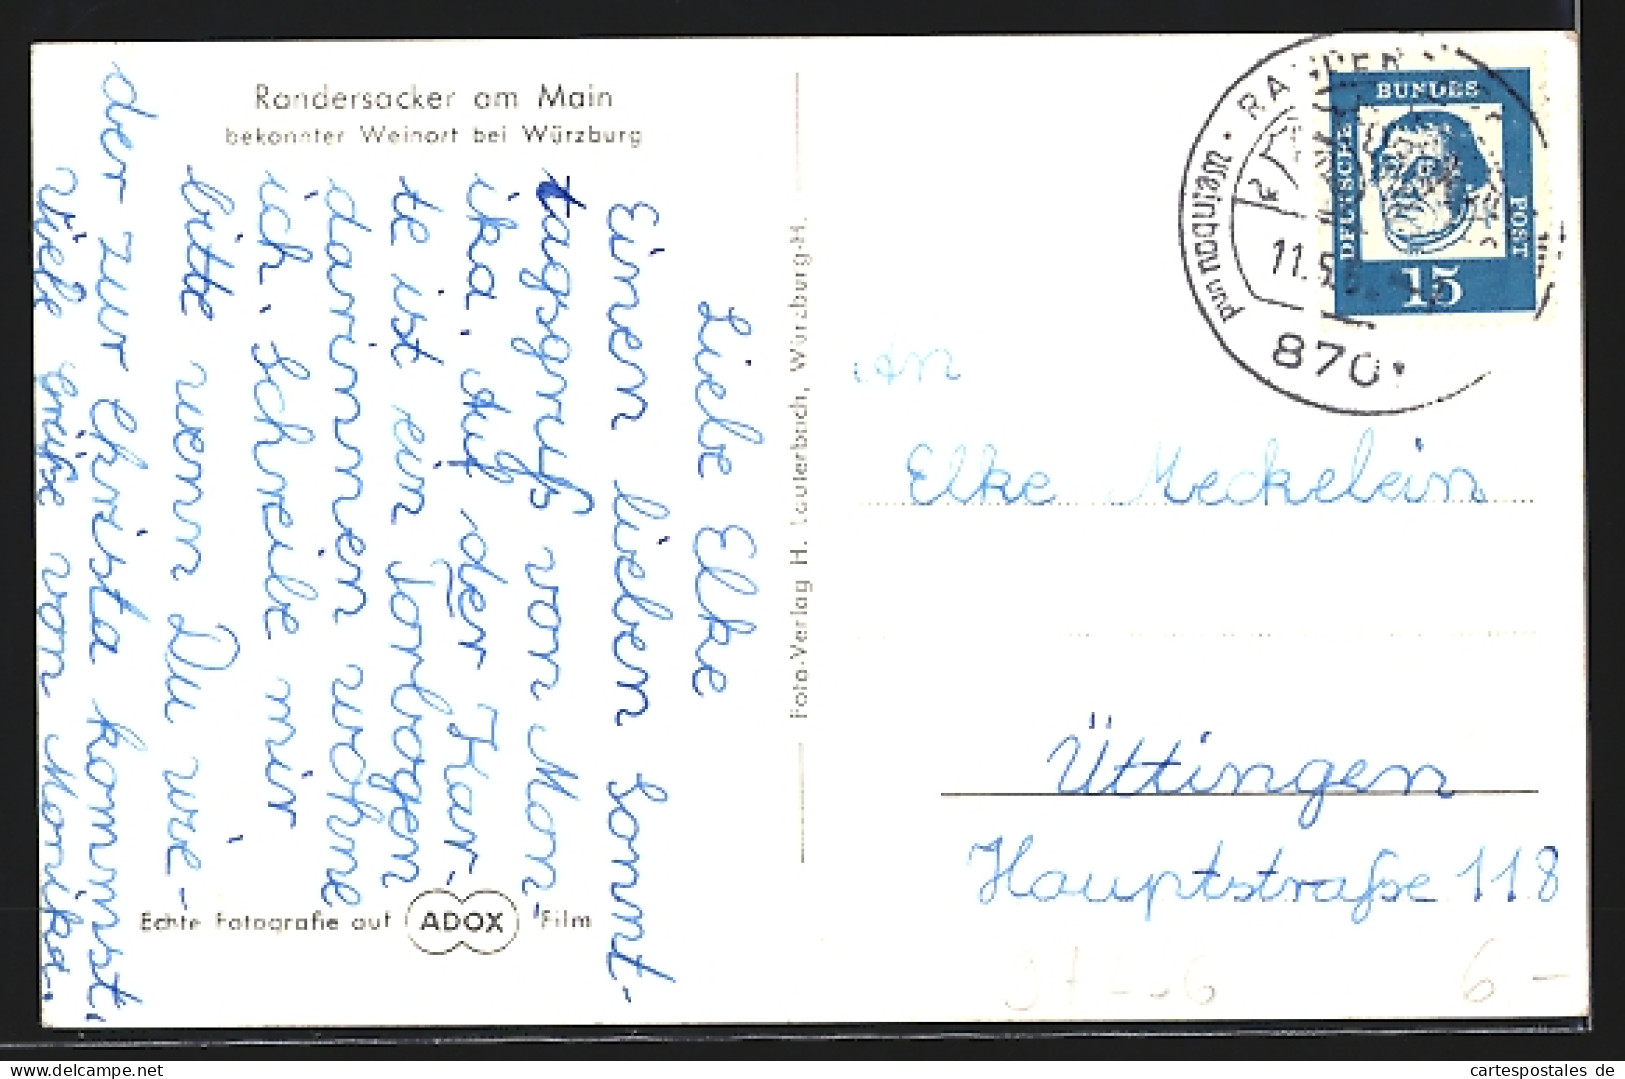 Randersacker am Main
bekannter Weinort bei Würzburg
Liebe Elke
Einen lieben Sonnt-
tagsgruß von Mon-
ika. Auf der Kar-
te ist ein Torbogen
darinnen wohne
ich. Schreibe mir
bitte wenn Du wie-
der zur Christa kommst.
Viele Grüße von Monika.
Echte Fotografie auf ADOX Film
Foto-Verlag H. Lauterbach, Würzburg-H.
DEUTSCHE BUNDES POST
15
Weinbau und
11.5.
870
An
Elke Meckelein
Üttingen
Hauptstraße 118
6,-
www.cartespostales.de